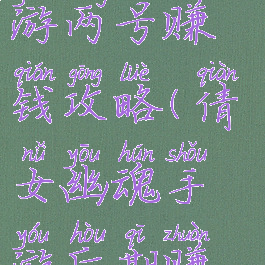 游两号赚
qián gōng lüè qiàn
钱攻略(倩
nǚ yōu hún shǒu
女幽魂手
yóu hòu qī zhuàn
游后期赚